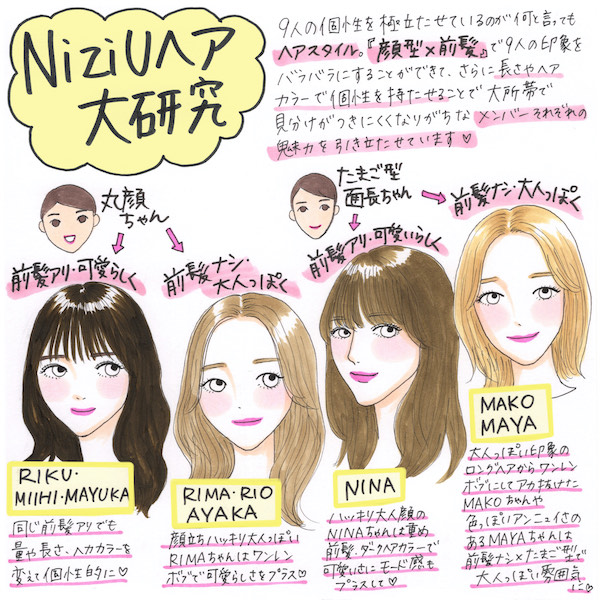 NiziUヘア
大研究
9人の個性を極立たせているのが何と言っても
ヘアスタイル。『顔型×前髪』で9人の印象を
バラバラにすることができて、さらに長さやヘア
カラーで個性を持たせることで大所帯で
見分けがつきにくくなりがちなメンバーそれぞれの
魅力を引き立たせています♡
丸顔
ちゃん
前髪アリ・可愛らしく
前髪ナシ・
大人っぽく
たまご型
面長ちゃん
前髪アリ・可愛いらしく
前髪ナシ・大人っぽく
RIKU・
MIIHI・MAYUKA
同じ前髪アリでも
量や長さ、ヘアカラーを
変えて個性的に♡
RIMA・RIO
AYAKA
顔立ちハッキリ大人っぽい
RIMAちゃんはワンレン
ボブで可愛らしさをプラス♡
NINA
ハッキリ大人顔の
NINAちゃんは重め
前髪、ダークヘアカラーで
可愛いさにモード感も
プラスして♡
MAKO
MAYA
大人っぽい印象の
ロングヘアからワンレン
ボブにしてアカ抜けた
MAKOちゃんや
色っぽいアンニュイさの
あるMAYAちゃんは
前髪ナシ×たまご型で
大人っぽい雰囲気
に♡